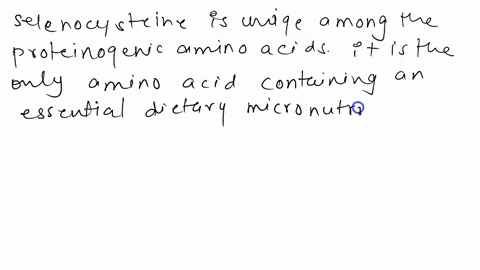 selenocysteine is uniqe among the
proteinogenic amino acids. it is the
only amino acid containing an
essential dietary micronutri